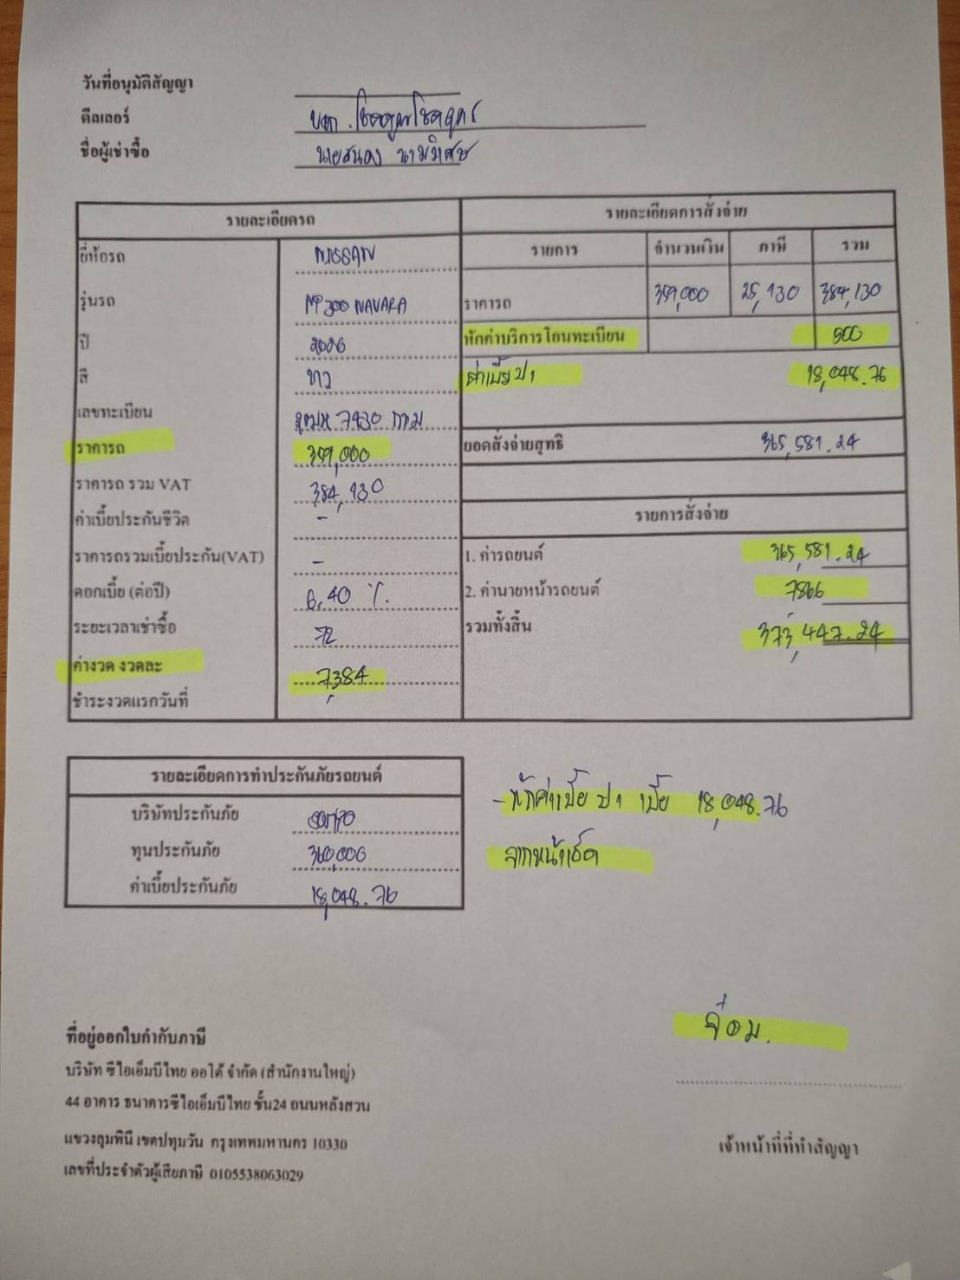 วันที่อนุมัติสัญญา
ดีลเลอร์ บจก. โชคคูณโชค
ชื่อผู้เช่าซื้อ นายสนอง
รายละเอียดรถ
ยี่ห้อรถ NISSAN
รุ่นรถ NP300 NAVARA
ปี
สี ขาว
เลขทะเบียน 7430 กทม
ราคารถ 359,000
ราคารถ รวม VAT 384,130
ค่าเบี้ยประกันชีวิต -
ราคารถรวมเบี้ยประกัน(VAT) -
ดอกเบี้ย (ต่อปี) 6.40 %
ระยะเวลาเช่าซื้อ 72
ค่างวด งวดละ 7,384
ชำระงวดแรกวันที่
รายละเอียดการสั่งจ่าย
รายการ จำนวนเงิน ภาษี รวม
ราคารถ 359,000 25,130 384,130
หักค่าบริการโอนทะเบียน 500
ค่าเบี้ย ป1 18,048.76
ยอดสั่งจ่ายสุทธิ 365,581.24
รายการสั่งจ่าย
1. ค่ารถยนต์ 365,581.24
2. ค่านายหน้ารถยนต์ 7866
รวมทั้งสิ้น 373,447.24
รายละเอียดการทำประกันภัยรถยนต์
บริษัทประกันภัย
ทุนประกันภัย 360,000
ค่าเบี้ยประกันภัย 18,048.76
- หักค่าเบี้ย ป1 เบี้ย 18,048.76
จากหน้าเช็ค
ที่อยู่ออกใบกำกับภาษี
บริษัท ซีไอเอ็มบีไทย ออโต้ จำกัด (สำนักงานใหญ่)
44 อาคาร ธนาคารซีไอเอ็มบีไทย ชั้น24 ถนนหลังสวน
แขวงลุมพินี เขตปทุมวัน กรุงเทพมหานคร 10330
เลขที่ประจำตัวผู้เสียภาษี 0105538063029
จ๋อม.
เจ้าหน้าที่ที่ทำสัญญา